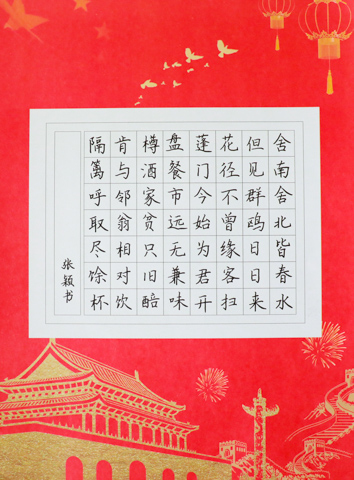 舍南舍北皆春水
但见群鸥日日来
花径不曾缘客扫
蓬门今始为君开
盘餐市远无兼味
樽酒家贫只旧醅
肯与邻翁相对饮
隔篱呼取尽馀杯
张颖书